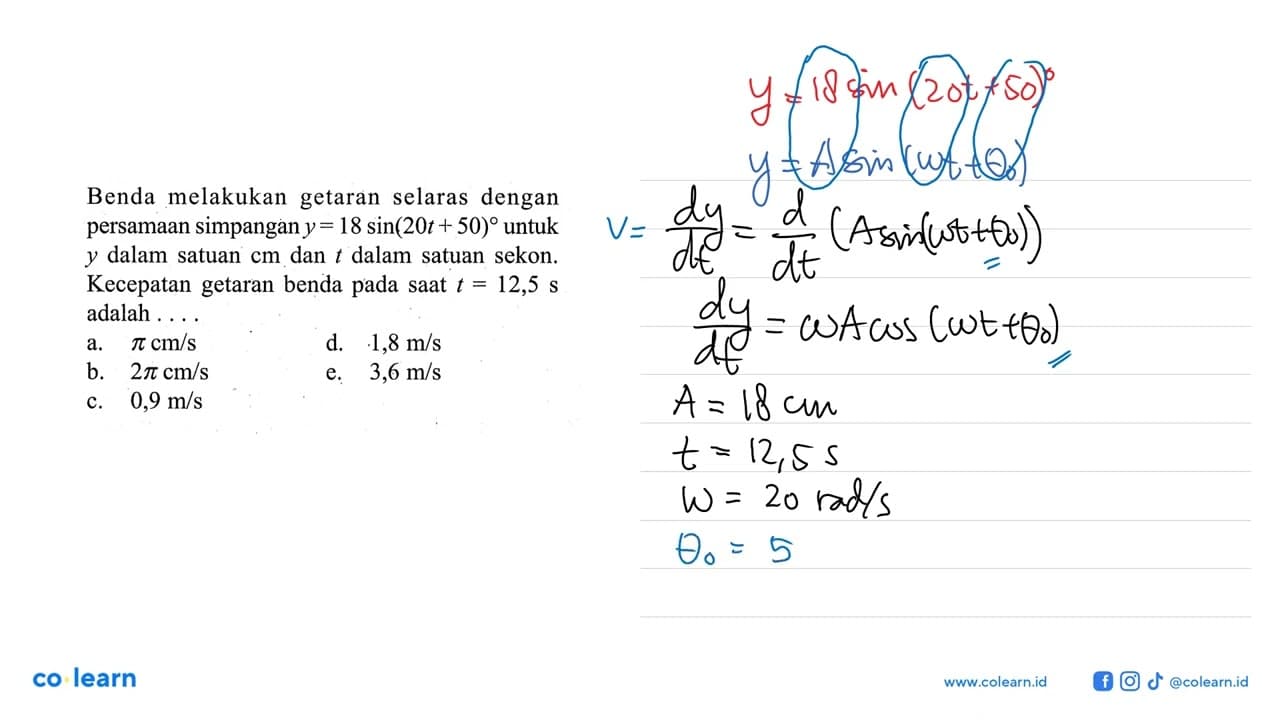 Benda melakukan getaran selaras dengan
persamaan simpangan y = 18 sin(20t + 50)° untuk
y dalam satuan cm dan t dalam satuan sekon.
Kecepatan getaran benda pada saat t = 12,5 s
adalah . . . .
a. π cm/s d. 1,8 m/s
b. 2π cm/s e. 3,6 m/s
c. 0,9 m/s
y = 18 sin (20t + 50)°
y = A sin (ωt + θ₀)
V = dy/dt = d/dt (A sin(ωt + θ₀))
dy/dt = ωA cos (ωt + θ₀)
A = 18 cm
t = 12,5 s
ω = 20 rad/s
θ₀ = 5
co learn
www.colearn.id
@colearn.id